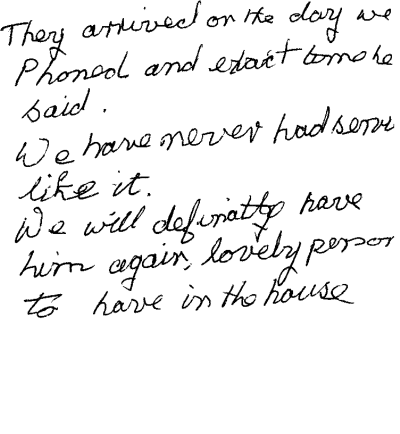 They arrived on the day we
Phoned and exact time he
said.
We have never had serv
like it.
We will definatly have
him again, lovely person
to have in the house